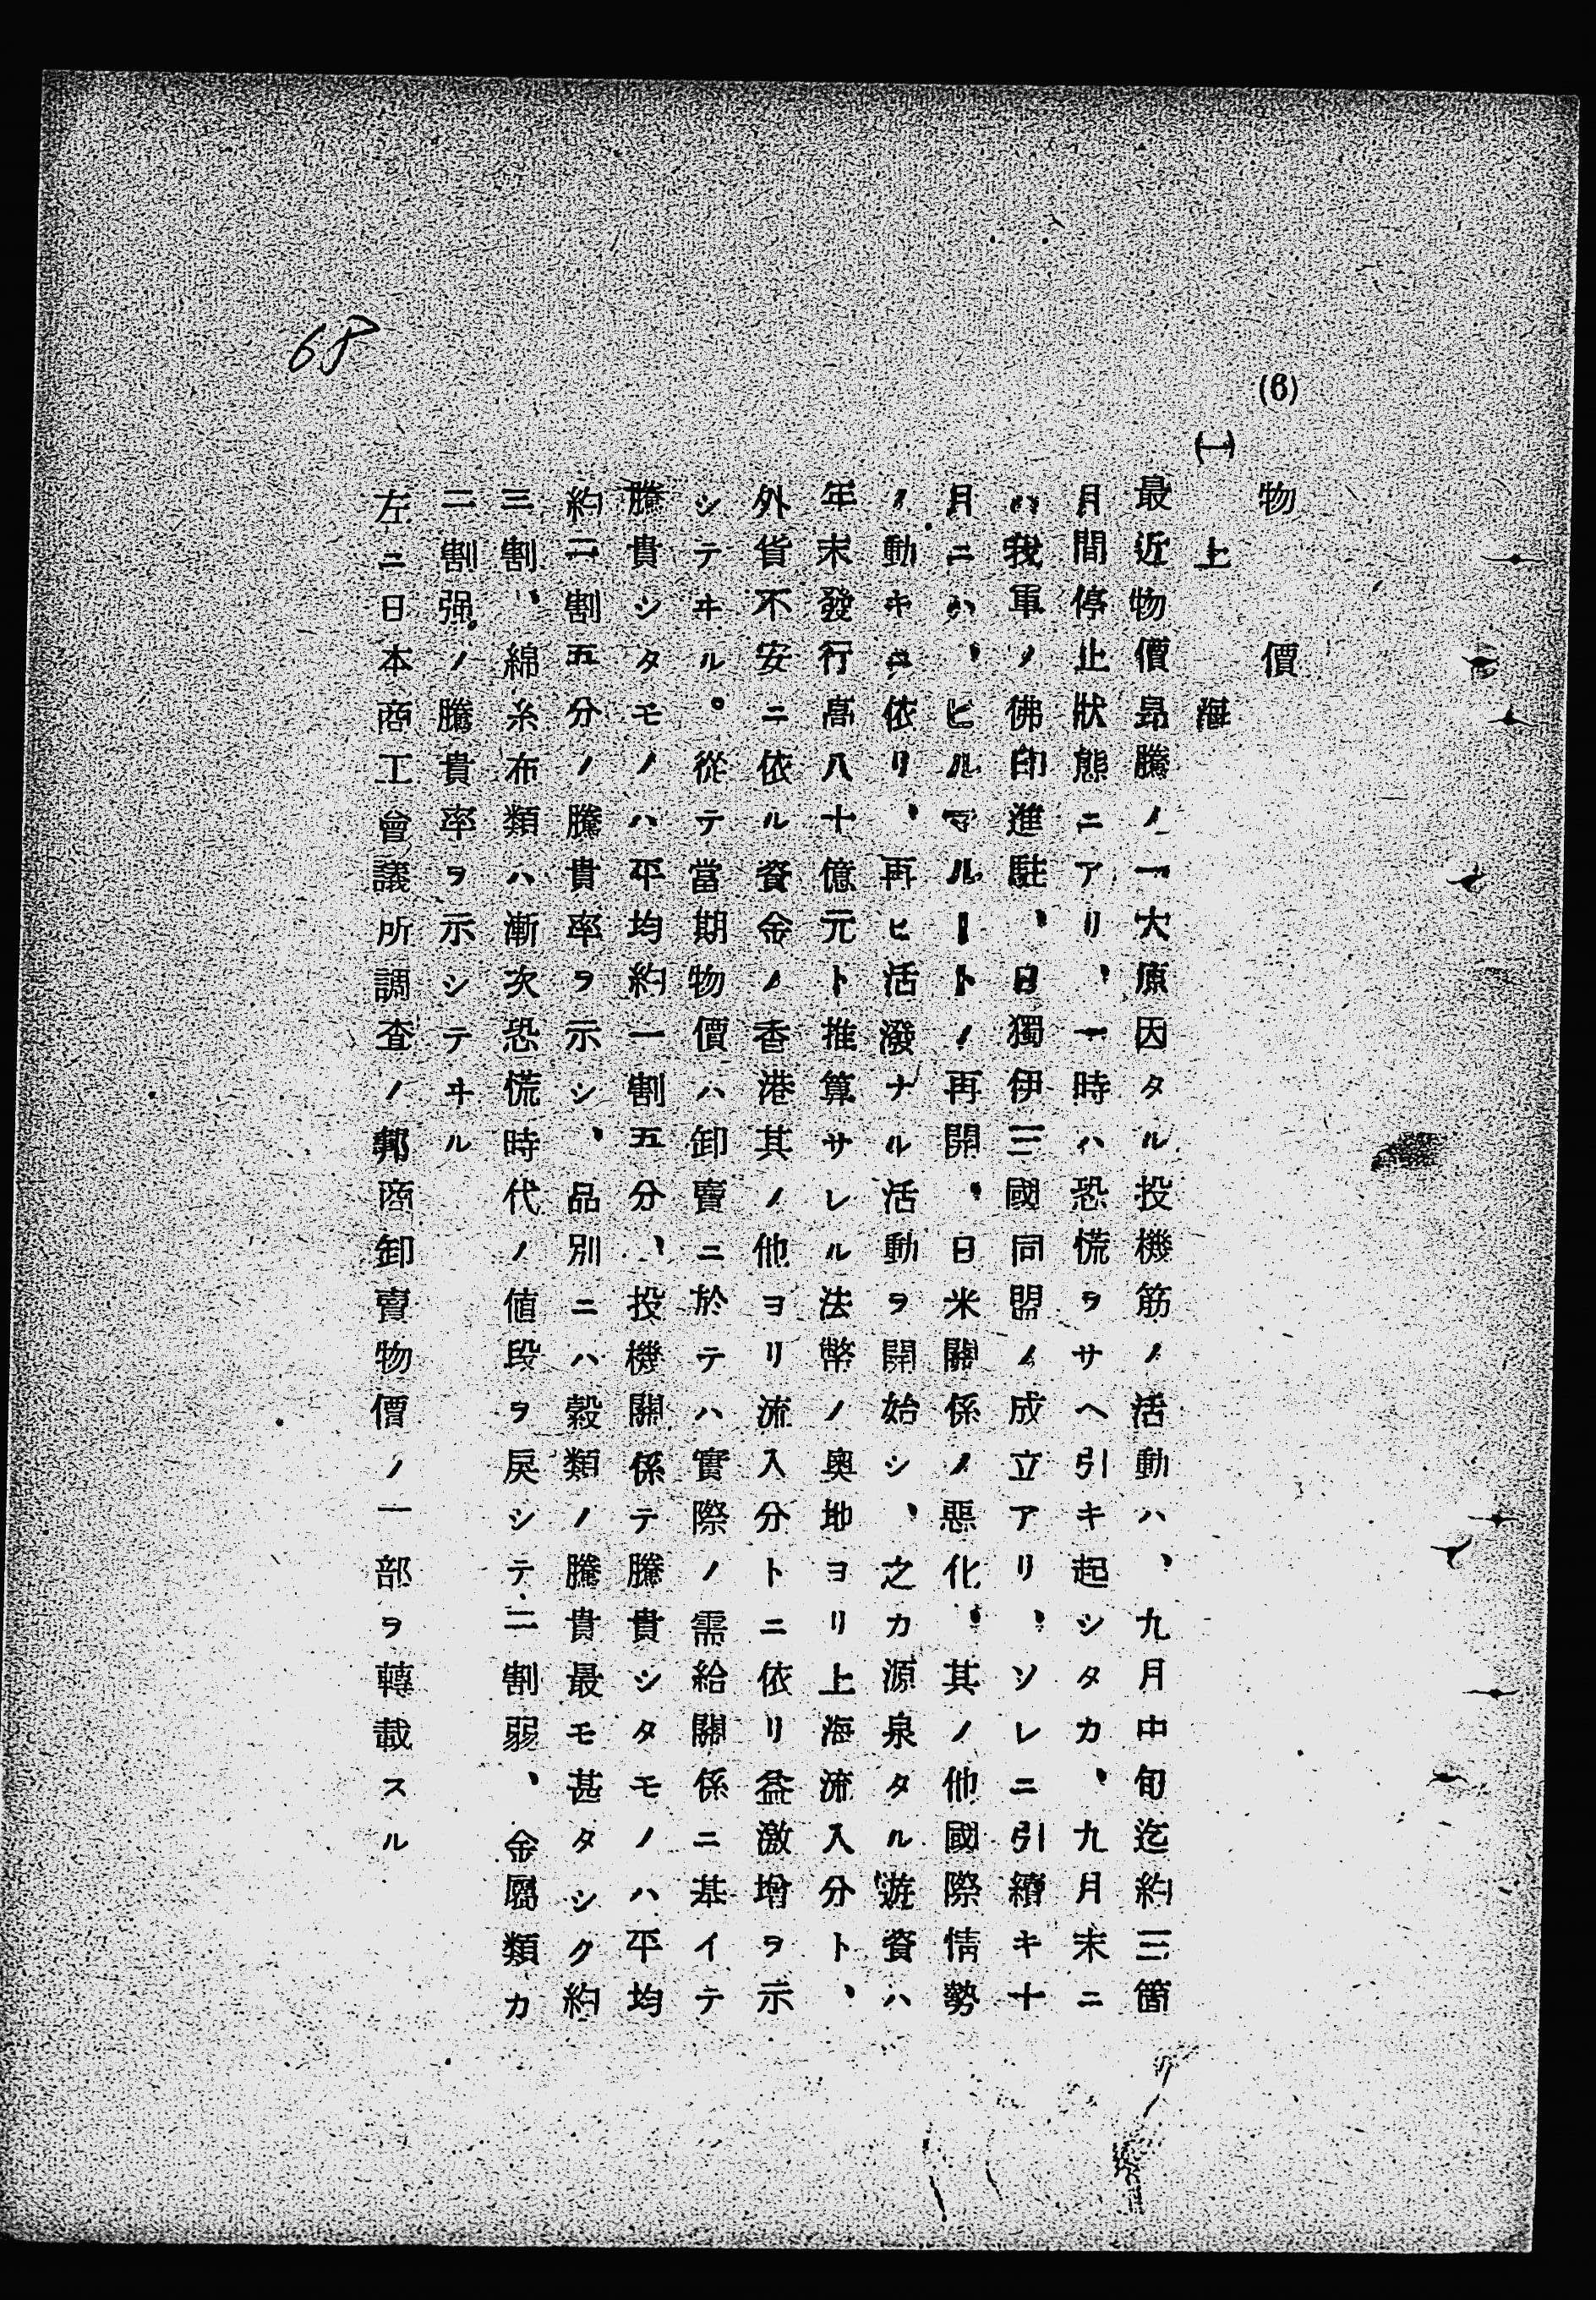 68
(6) 物價
(一) 上海
最近物價昂騰ノ一大原因タル投機筋ノ活動ハ、九月中旬迄約三箇
月間停止狀態ニアリ、一時ハ恐慌ヲサヘ引キ起シタカ、九月末ニ
ハ我軍ノ佛印進駐、日獨伊三國同盟ノ成立アリ、ソレニ引續キ十
月ニハ、ビルマルートノ再開、日米關係ノ惡化、其ノ他國際情勢
ノ動キニ依リ、再ヒ活潑ナル活動ヲ開始シ、之カ源泉タル遊資ハ
年末發行高八十億元ト推算サレル法幣ノ奧地ヨリ上海流入分ト、
外貨不安ニ依ル資金ノ香港其ノ他ヨリ流入分トニ依リ益激增ヲ示
シテヰル。從テ當期物價ハ卸賣ニ於テハ實際ノ需給關係ニ基イテ
騰貴シタモノハ平均約一割五分、投機關係テ騰貴シタモノハ平均
約二割五分ノ騰貴率ヲ示シ、品別ニハ穀類ノ騰貴最モ甚タシク約
三割、綿糸布類ハ漸次恐慌時代ノ値段ヲ戾シテ二割弱、金屬類カ
二割强ノ騰貴率ヲ示シテヰル
左ニ日本商工會議所調査ノ邦商卸賣物價ノ一部ヲ轉載スル